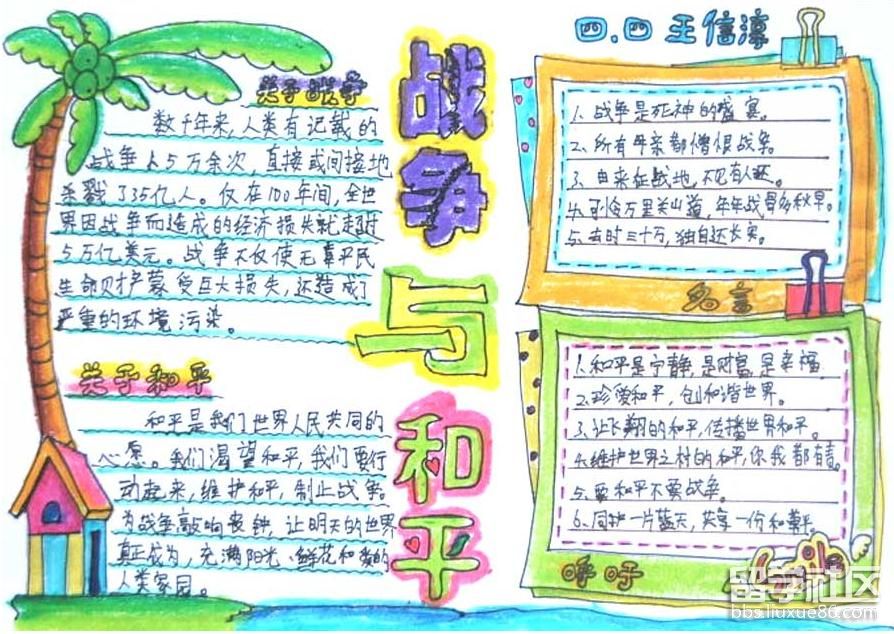 战争与和平
四.四 王信淳
关于战争
数千年来,人类有记载的
战争上5万余次,直接或间接地
杀戮了35亿人。仅在100年间,全世
界因战争而造成的经济损失就超过
5万亿美元。战争不仅使无辜平民
生命财产蒙受巨大损失,还造成了
严重的环境污染。
关于和平
和平是我们世界人民共同的
心愿。我们渴望和平,我们要行
动起来,维护和平,制止战争。
为战争敲响丧钟,让明天的世界
真正成为,充满阳光、鲜花和爱的
人类家园。
1、战争是死神的盛宴。
2、所有母亲都憎恨战争。
3、由来征战地,不见有人还。
4、可怜万里关山道,年年战骨多秋草。
5、去时三十万,独自还长安。
名言
1.和平是宁静,是财富,是幸福
2.珍爱和平,创和谐世界。
3.让飞翔的和平,传播世界和平。
4.维护世界之村的和平,你我都有责。
5、要和平不要战争。
6、同护一片蓝天,共享一份和平。
呼吁
留学社区
bbs.liuxue86.com